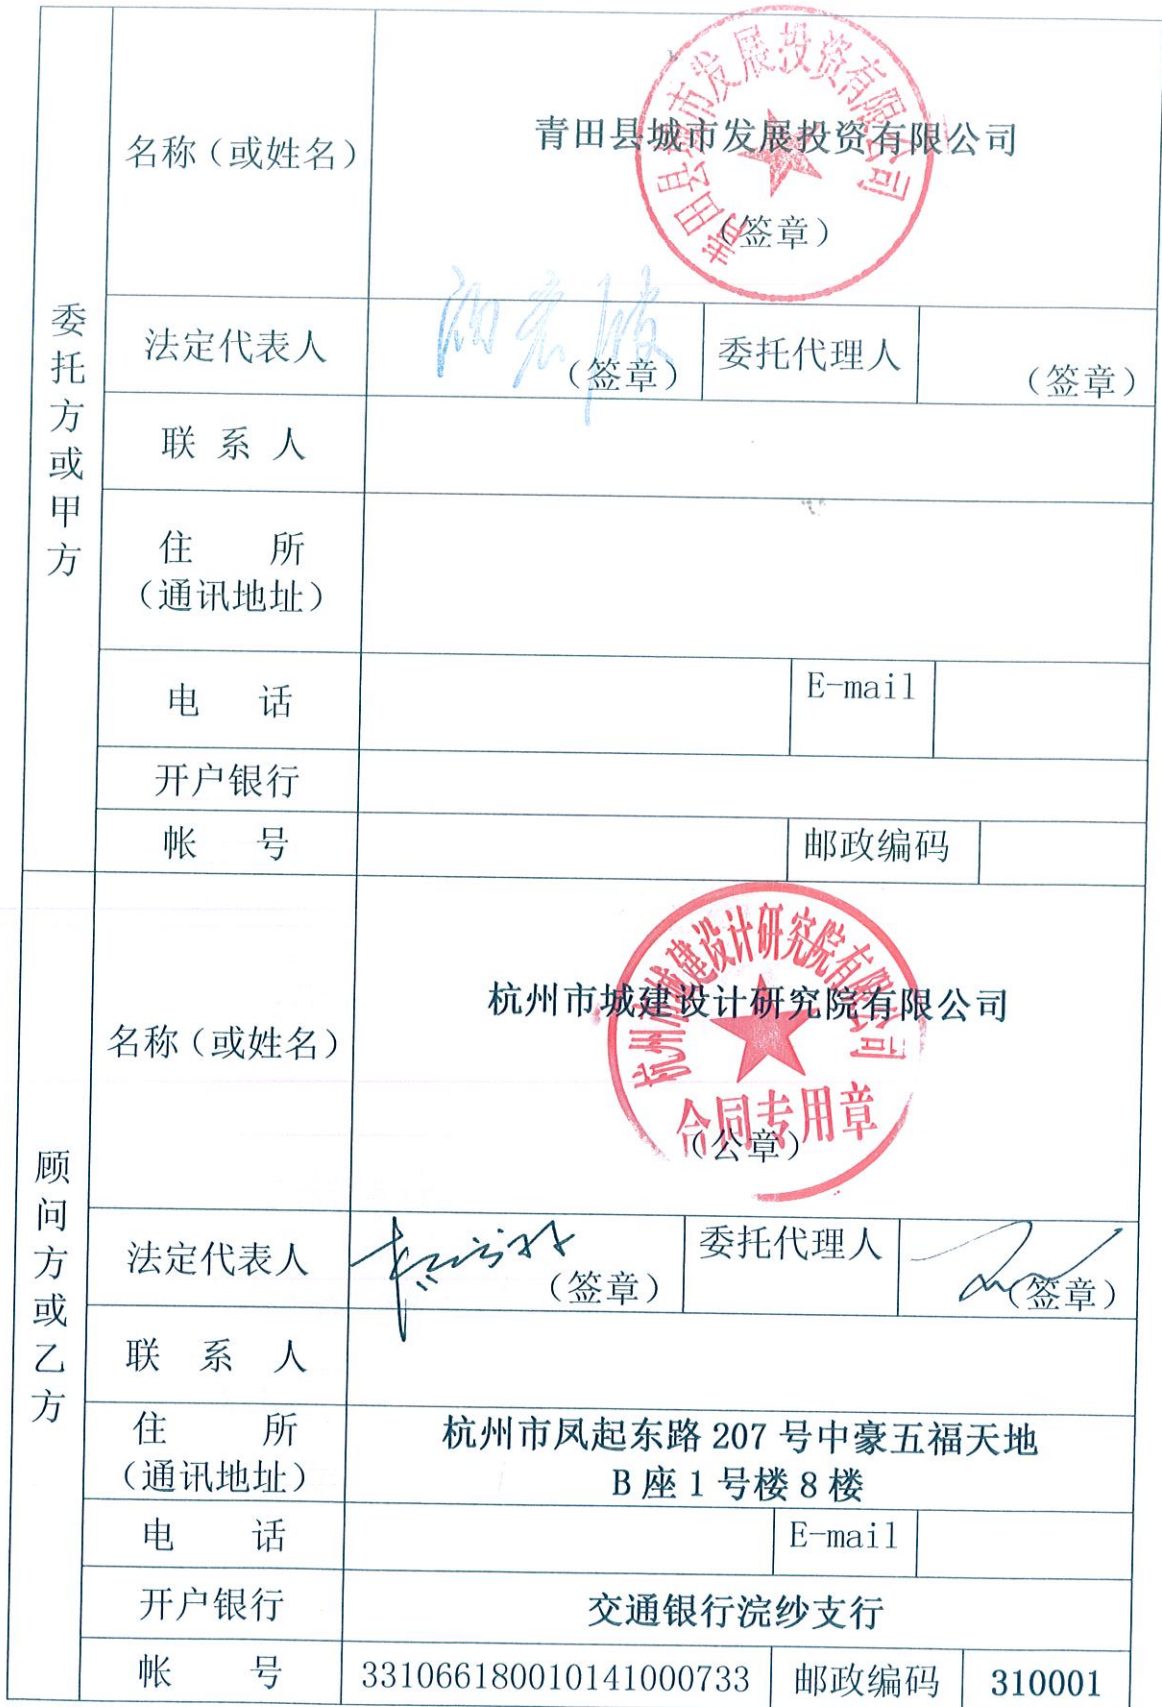 委托方或甲方
名称（或姓名）
青田县城市发展投资有限公司
（签章）
青田县城市发展投资有限公司
法定代表人
（签章）
委托代理人
（签章）
联 系 人
住 所
（通讯地址）
电 话
E-mail
开户银行
帐 号
邮政编码
顾问方或乙方
名称（或姓名）
杭州市城建设计研究院有限公司
（公章）
杭州市城建设计研究院有限公司
合同专用章
法定代表人
（签章）
委托代理人
（签章）
联 系 人
住 所
（通讯地址）
杭州市凤起东路 207 号中豪五福天地
B 座 1 号楼 8 楼
电 话
E-mail
开户银行
交通银行浣纱支行
帐 号
331066180010141000733
邮政编码
310001